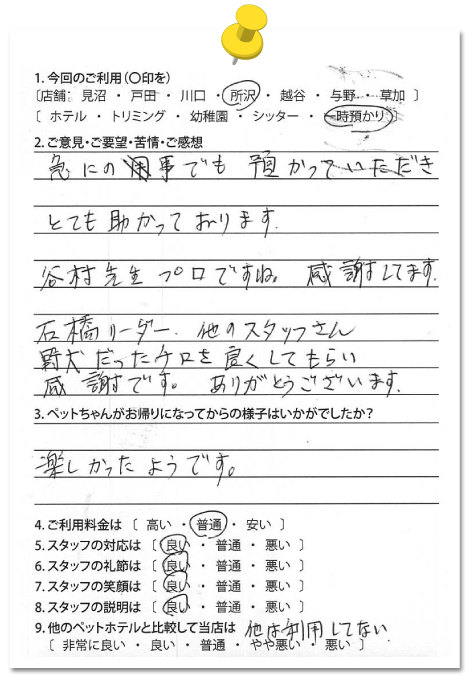 1. 今回のご利用(〇印を)
〔店舗: 見沼 ・ 戸田 ・ 川口 ・ 所沢 ・ 越谷 ・ 与野 ・ 草加 〕
〔 ホテル ・ トリミング ・ 幼稚園 ・ シッター ・ 一時預かり 〕
2. ご意見・ご要望・苦情・ご感想
急にの用事でも 預かっていただき
とても助かっております.
谷村先生プロですね。感謝してます.
石橋リーダー. 他のスタッフさん
野犬だったケロを良くしてもらい
感謝です。 ありがとうございます.
3. ペットちゃんがお帰りになってからの様子はいかがでしたか?
楽しかったようです。
4. ご利用料金は 〔 高い ・ 普通 ・ 安い 〕
5. スタッフの対応は 〔 良い ・ 普通 ・ 悪い 〕
6. スタッフの礼節は 〔 良い ・ 普通 ・ 悪い 〕
7. スタッフの笑顔は 〔 良い ・ 普通 ・ 悪い 〕
8. スタッフの説明は 〔 良い ・ 普通 ・ 悪い 〕
9. 他のペットホテルと比較して当店は 他は利用してない.
〔 非常に良い ・ 良い ・ 普通 ・ やや悪い ・ 悪い 〕